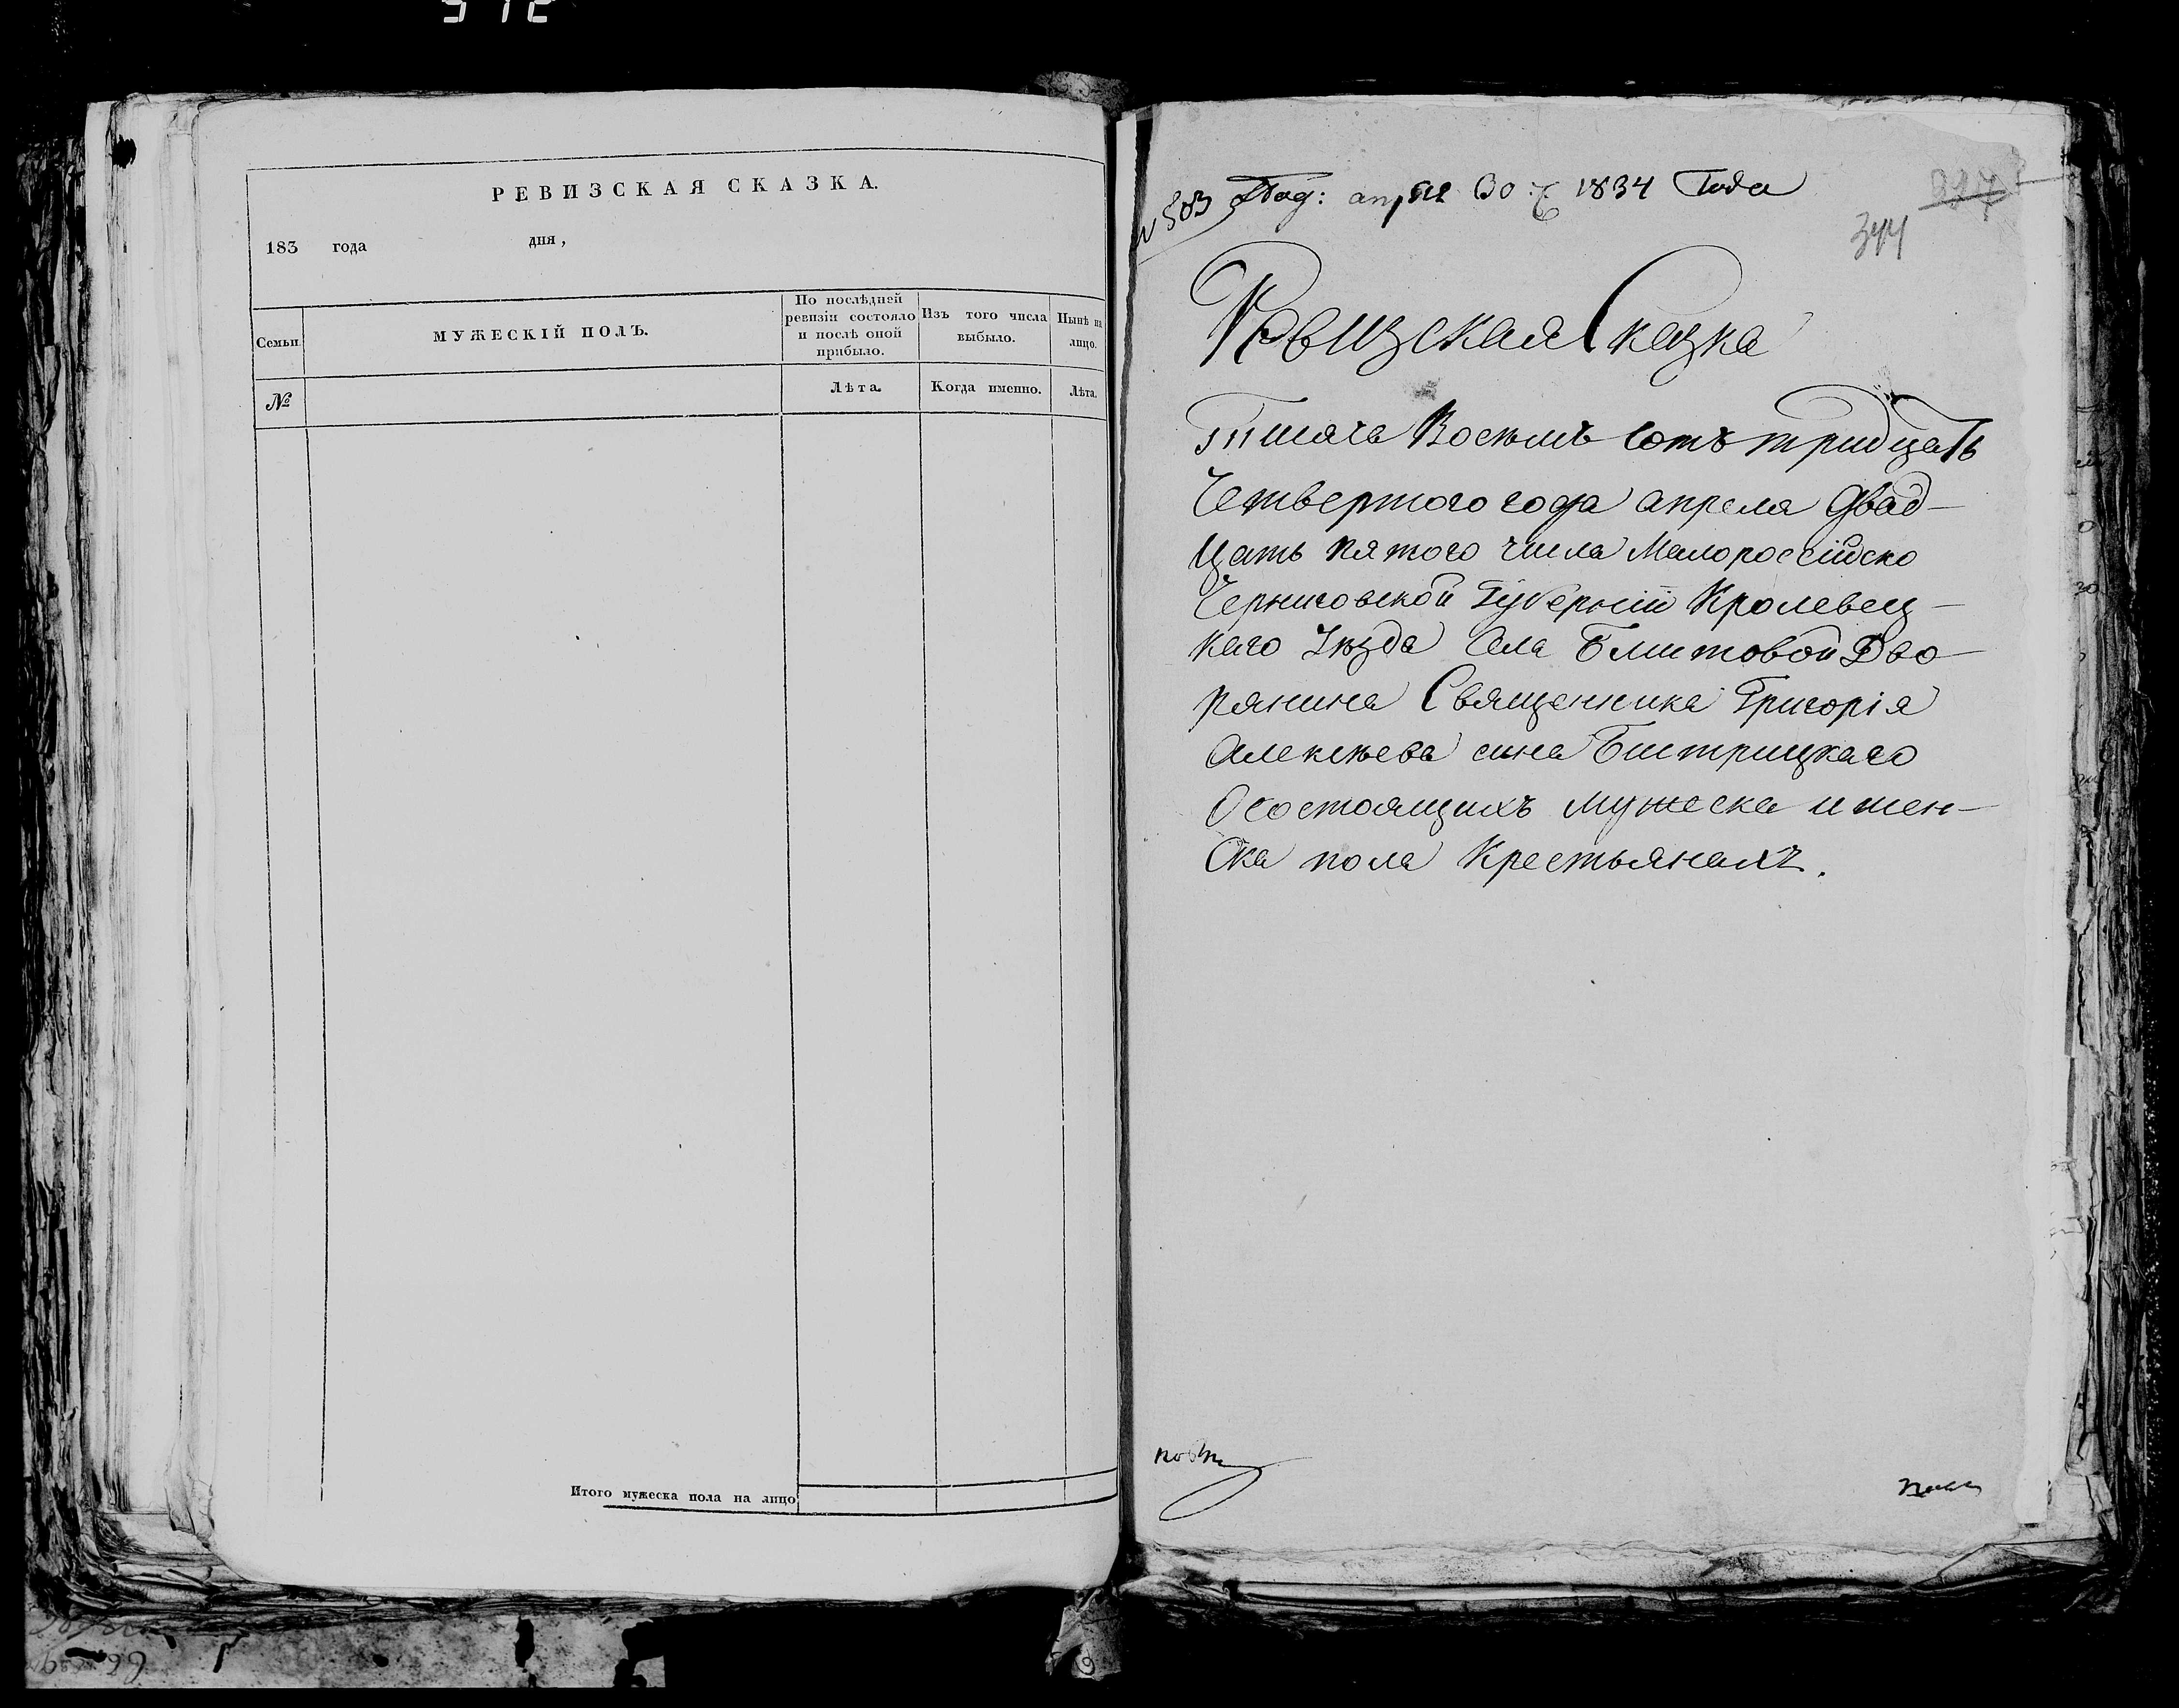 РЕВИЗСКАЯ СКАЗКА.
183 года дня,
Семьи
МУЖЕСКІЙ ПОЛЪ.
По послѣдней ревизіи состояло и послѣ оной прибыло.
Изъ того числа выбыло.
Нынѣ на лицо.
№
Лѣта.
Когда именно.
Лѣта.
Итого мужеска пола на лицо
503 Под: апрѣля 30 1834 Года
344
Ревизская Сказка
Тисяча Восемъ сотъ тридцать
Четвертого года апреля двад-
цать пятого числа Малороссійско
Черниговской Губерніи Кролевец-
каго Уезда Села Блитовой Дво-
рянина Священника Григорія
Алексѣева сина Бистрицкаго
О состоящихъ мужеска и жен-
ска пола Крестьянахъ.